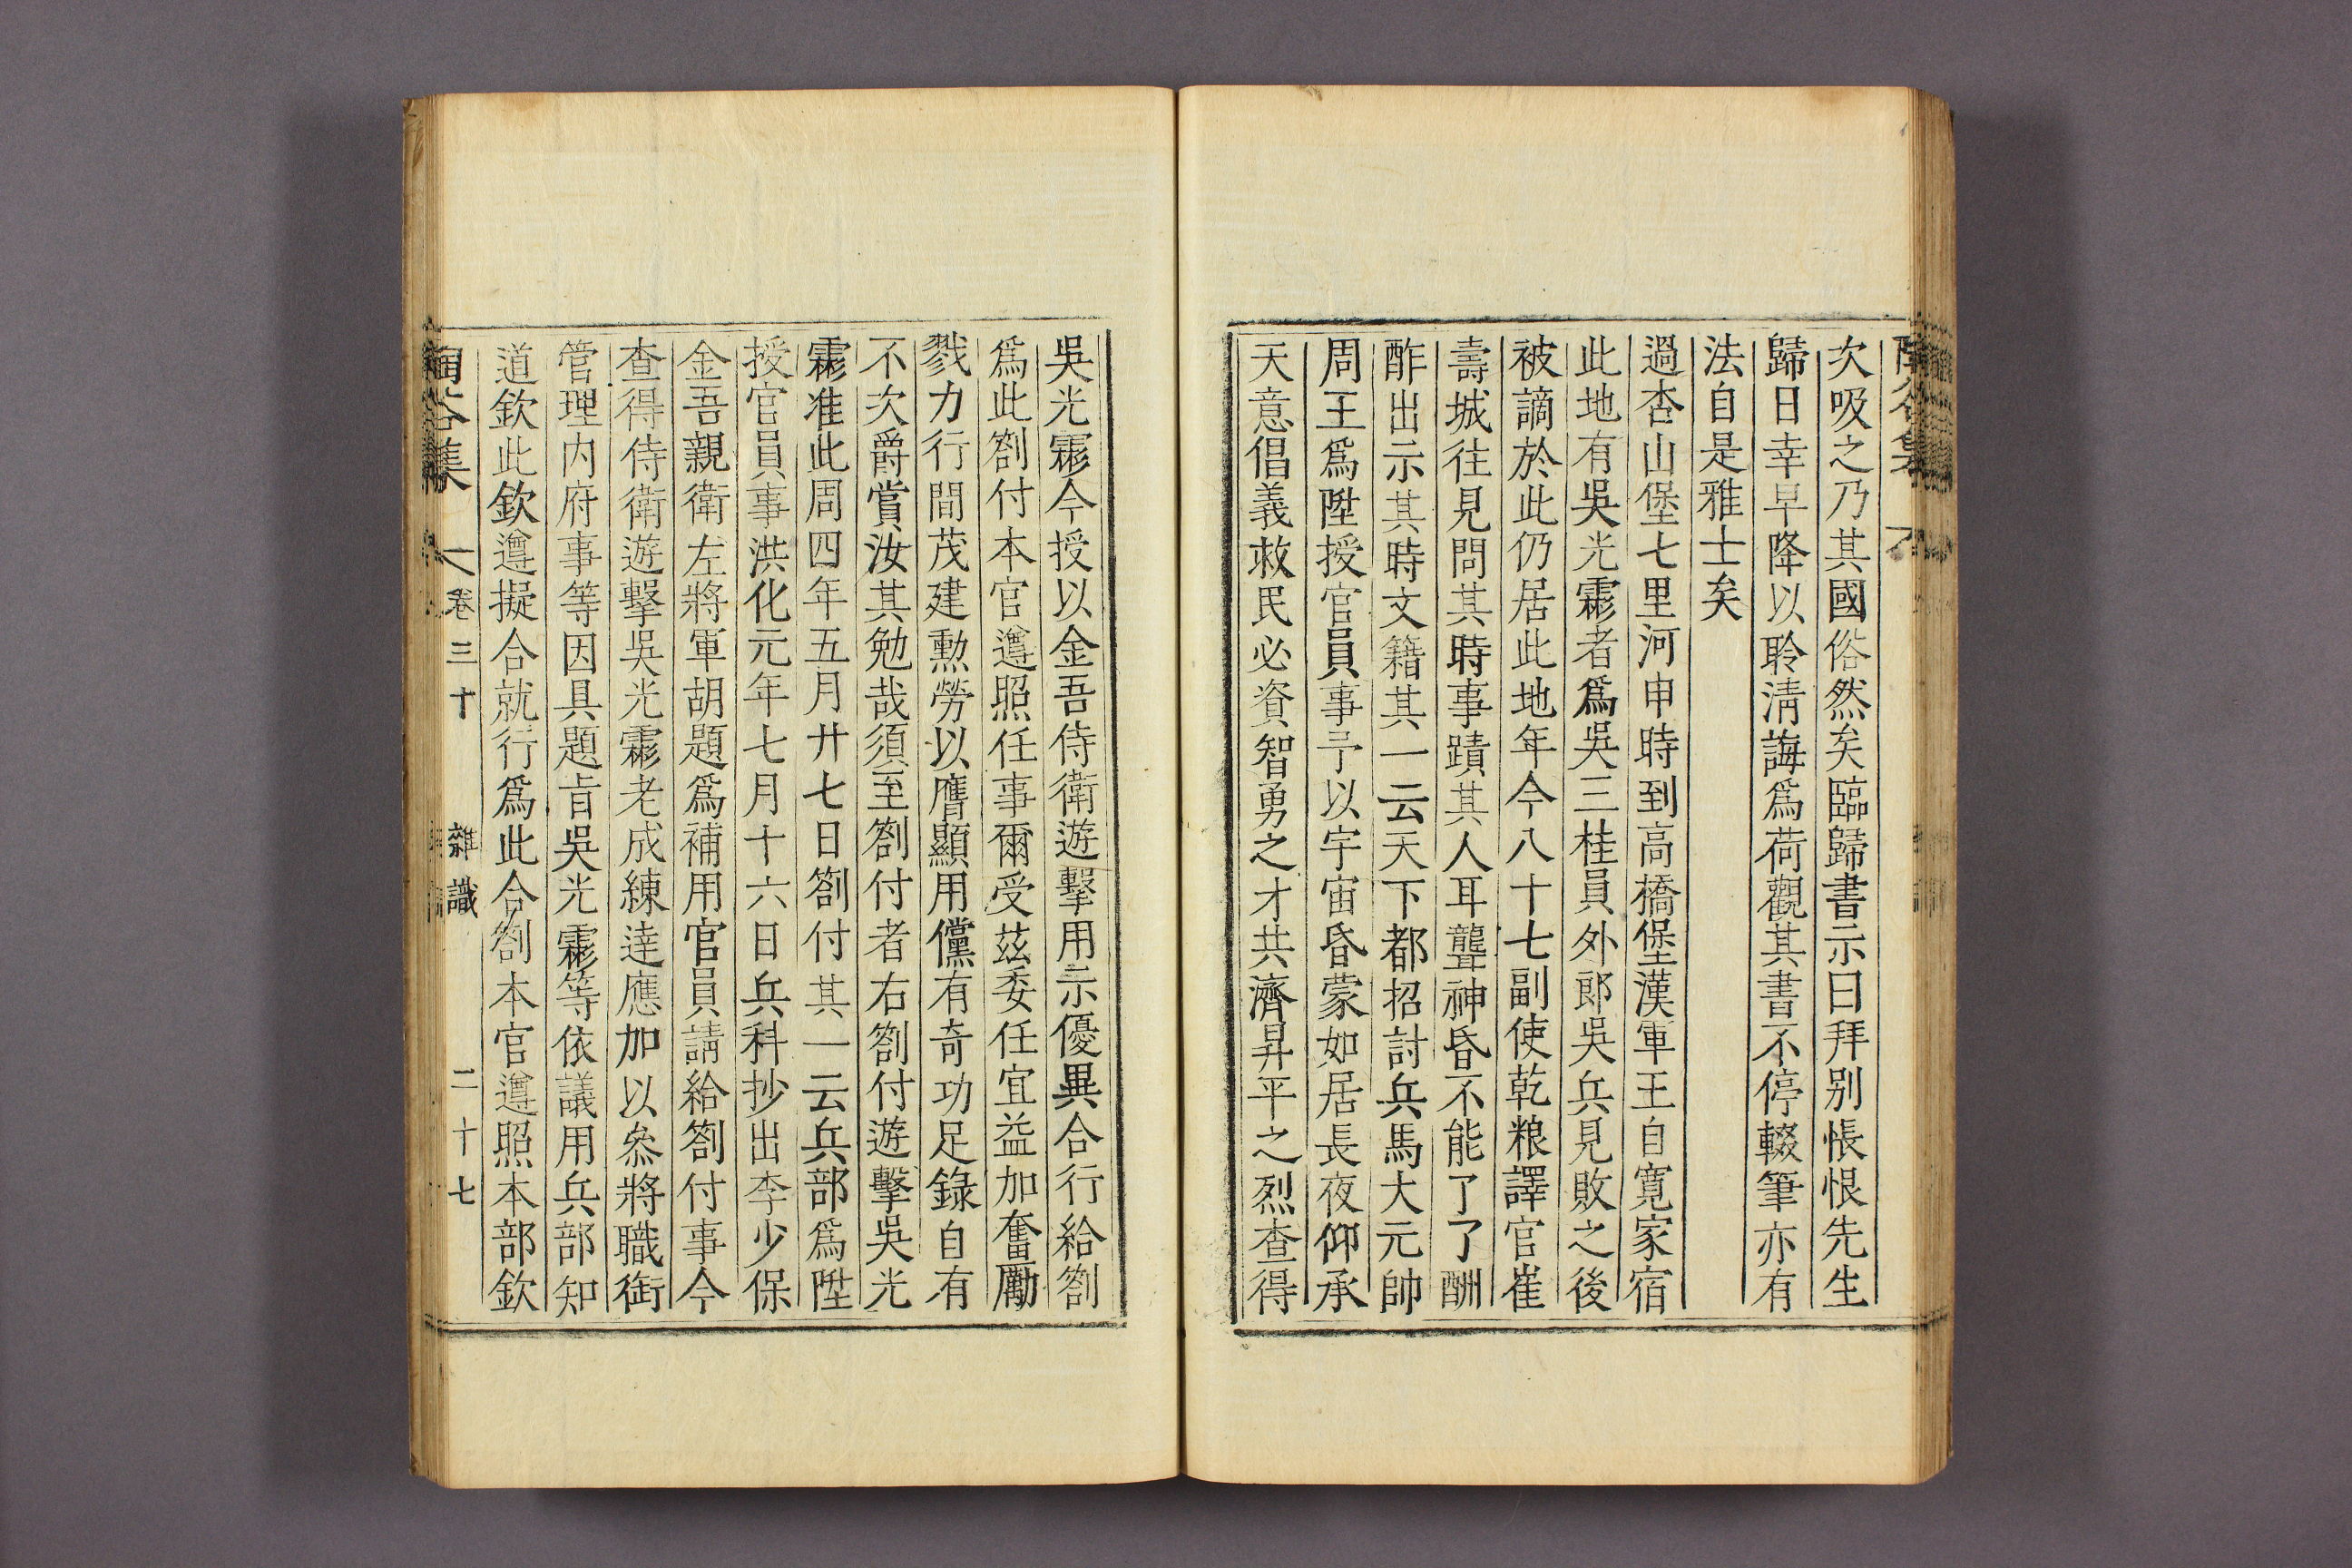 次吸之乃其國俗然矣臨歸書示曰拜别悵恨先生
歸日幸早降以聆淸誨爲荷觀其書不停輟筆亦有
法自是雅士矣
過杏山堡七里河申時到高橋堡漢軍王自寬家宿
此地有吳光霦者爲吳三桂員外郎吳兵見敗之後
被謫於此仍居此地年今八十七副使乾粮譯官崔
壽城往見問其時事蹟其人耳聾神昏不能了了酬
酢出示其時文籍其一云天下都招討兵馬大元帥
周王爲陞授官員事予以宇宙昏蒙如居長夜仰承
天意倡義救民必資智勇之才共濟昇平之烈查得
吳光霦今授以金吾侍衛遊擊用示優異合行給劄
爲此劄付本官遵照任事爾受茲委任宜益加奮勵
戮力行間茂建勲勞以膺顯用儻有奇功足錄自有
不次爵賞汝其勉哉須至劄付者右劄付遊擊吳光
霦准此周四年五月廿七日劄付其一云兵部爲陞
授官員事洪化元年七月十六日兵科抄出李少保
金吾親衛左將軍胡題爲補用官員請給劄付事今
查得侍衛遊擊吳光霦老成練達應加以叅將職銜
管理内府事等因具題旨吳光霦等依議用兵部知
道欽此欽遵擬合就行爲此合劄本官遵照本部欽
陶谷集 卷三十 雜識 二十七